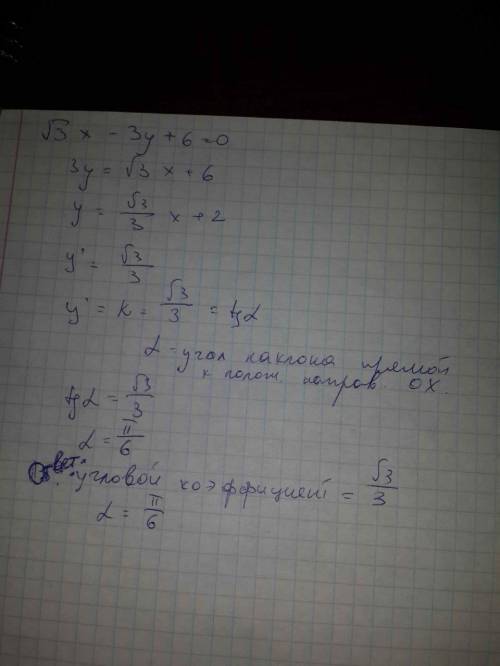 √3 x - 3y + 6 = 0
3y = √3 x + 6
y = √3/3 x + 2
y' = √3/3
y' = k = √3/3 = tg α
α - угол наклона прямой
к полож. направ. OX.
tg α = √3/3
α = π/6
Ответ: угловой коэффициент = √3/3
α = π/6